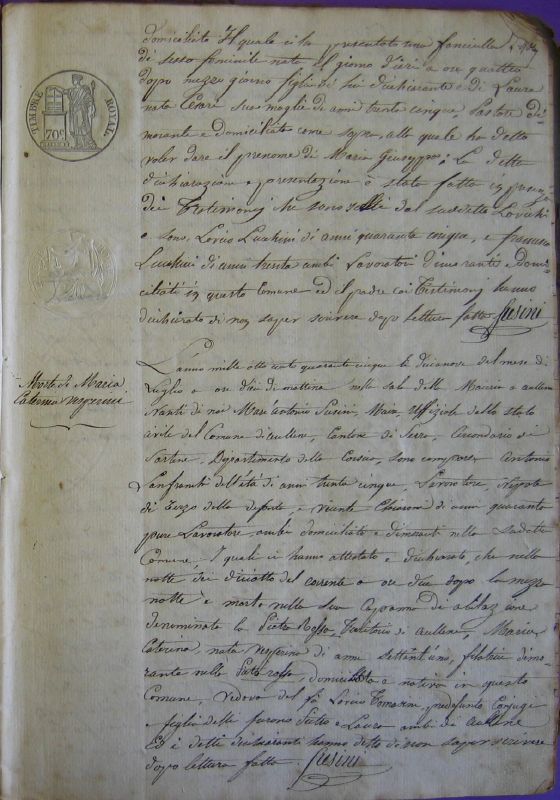 TIMBRE ROYAL
70c
domiciliato Il quale ci ha presentato una fanciulla
di sesso feminile nata il giorno d'ieri a ore quattro
dopo mezzo giorno figlia di lui dichiarante e di Laura
nata Cesari sua moglie di anni trenta cinque, Pastore di-
morante e domiciliata come sopra, alla quale ha detto
voler dare il prenome di Maria Giuseppa; La detta
dichiarazione e presentazione è stata fatta in presenza
dei Testimonj che sono
e sono, Lorio Luchini di anni quaranta cinque, e francesco
Luchini di anni trenta ambi Lavoratori dimoranti e domi-
ciliati in questo Comune ed il padre coi Testimonj hanno
dichiarato di non saper scrivere dopo lettura fatta Susini
Morte di Maria
Caterina
L'anno mille otto cento quaranta cinque li diecinove del mese di
Luglio a ore dieci di mattina nella sala della Maeria a aullene
Nanti di noi Marc'Antonio Susini, Maire, Uffiziale dello stato
civile del Comune di aullene, Cantone di Serra, Circondario di
Sartene, Dipartimento della Corsica, sono comparsi Antonio
Lanfranchi dell'età di anni trenta cinque, Lavoratore, Nipote
di Terzo della defunta, e Vicente Chiaroni di anni quaranta
pure Lavoratore, ambi domiciliati e dimoranti nella sudetta
Comune. I quali ci hanno attestato e dichiarato, che nella
notte dei diciotto del corrente a ore due dopo la mezza
notte è morta nella sua Capanna di abitazione
denominata la Pietra Rossa, Territorio di aullene, Maria
Caterina, nata di anni settant'uno, filatrice dimo-
rante nella Pietra rossa, domiciliata e nativa in questa
Comune, Vedova del fù Lorio Tomasini, predefunto Conjuge
e figlia delli furono Pietro e Laura ambi di aullene
Ed i detti dichiaranti hanno detto di non saper scrivere
dopo lettura fatta. Susini